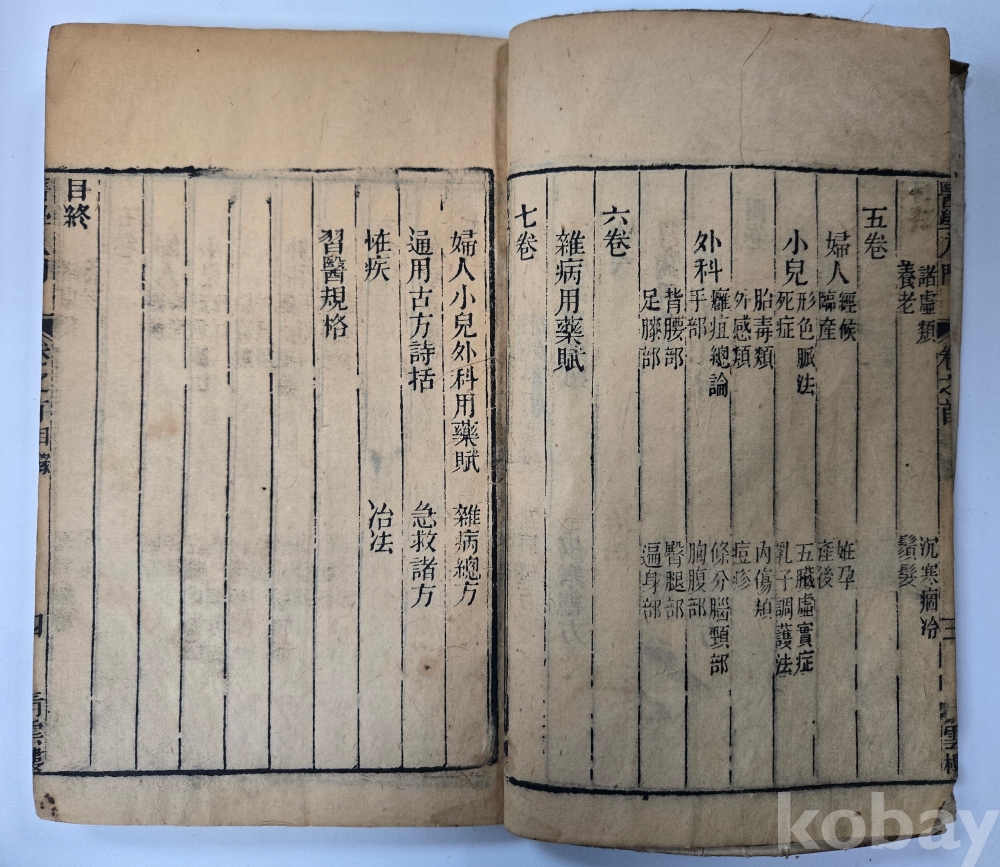 諸虛類 沉寒痼冷
養老 鬚髮
五卷
婦人 經候 姙孕
臨産 產後
小兒 形色脈法 五臟虛實症
死症 乳子調護法
胎毒類 內傷類
外感類 痘疹
外科 癰疽總論 條分腦頸部
手部 胸腹部
背腰部 臀腿部
足膝部 遍身部
六卷
雜病用藥賦
七卷
婦人小兒外科用藥賦 雜病總方
通用古方詩括 急救諸方
恠疾 治法
習醫規格
目終
醫學入門 卷之首 三
卷之首目錄 四 青雲樓
kobay